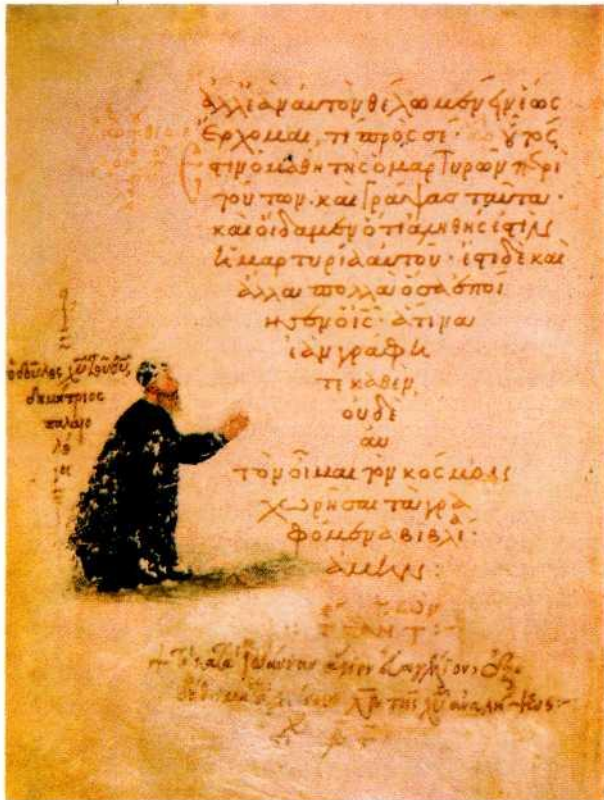 ἀλλ' ἐὰν αὐτὸν θέλω μένειν ἕως
ἔρχομαι, τί πρὸς σέ· οὗτός
ἐστιν ὁ μαθητὴς ὁ μαρτυρῶν περὶ
τούτων· καὶ γράψας ταῦτα·
καὶ οἴδαμεν ὅτι ἀληθής ἐστιν
ἡ μαρτυρία αὐτοῦ· ἔστι δὲ καὶ
ἄλλα πολλὰ ὅσα ἐποί
ησεν ὁ ις· ἅτινα
ἐὰν γράφη
τε καθέν,
οὐδὲ
αυ
τὸν οἶμαι τὸν κόσμον
χωρῆσαι τὰ γρα
φόμενα βιβλί
α ἀμήν:
ὁ δοῦλος χυ τοῦ θυ
δημήτριος
παλαιο
λό
γος
+ Τὸ κατὰ Ἰωάννην ἅγιον
τῆς χυ ἀναλήψεως